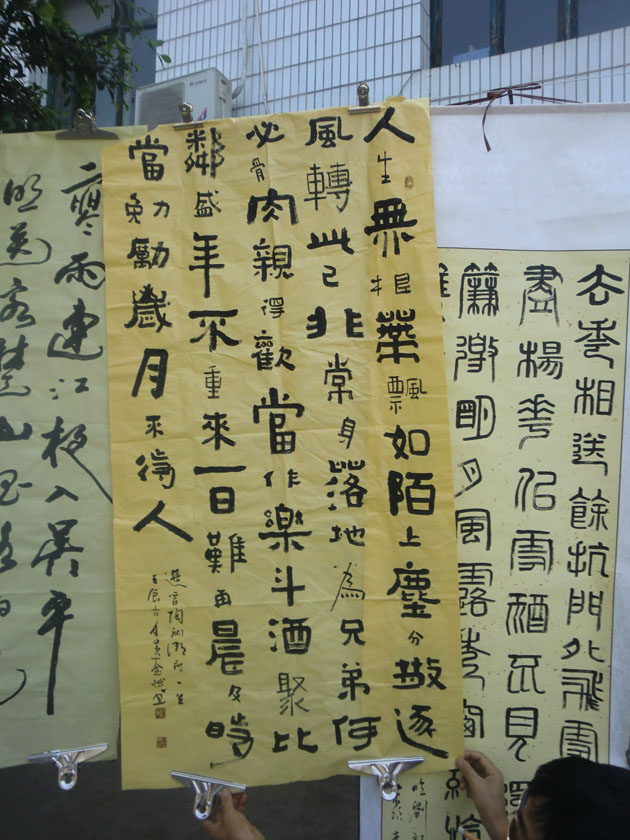 去年相送餘杭門外飛雪
盡楊花似雪猶不見
簾邀明月風露透
人生無根蒂飄如陌上塵分散逐
風轉此已非常身落地為兄弟何
必骨肉親得歡當作樂斗酒聚比
鄰盛年不重來一日難再晨及時
當勉勵歲月不待人
選晉陶淵明
壬辰
寒雨連江夜入吳平
明送客楚山孤